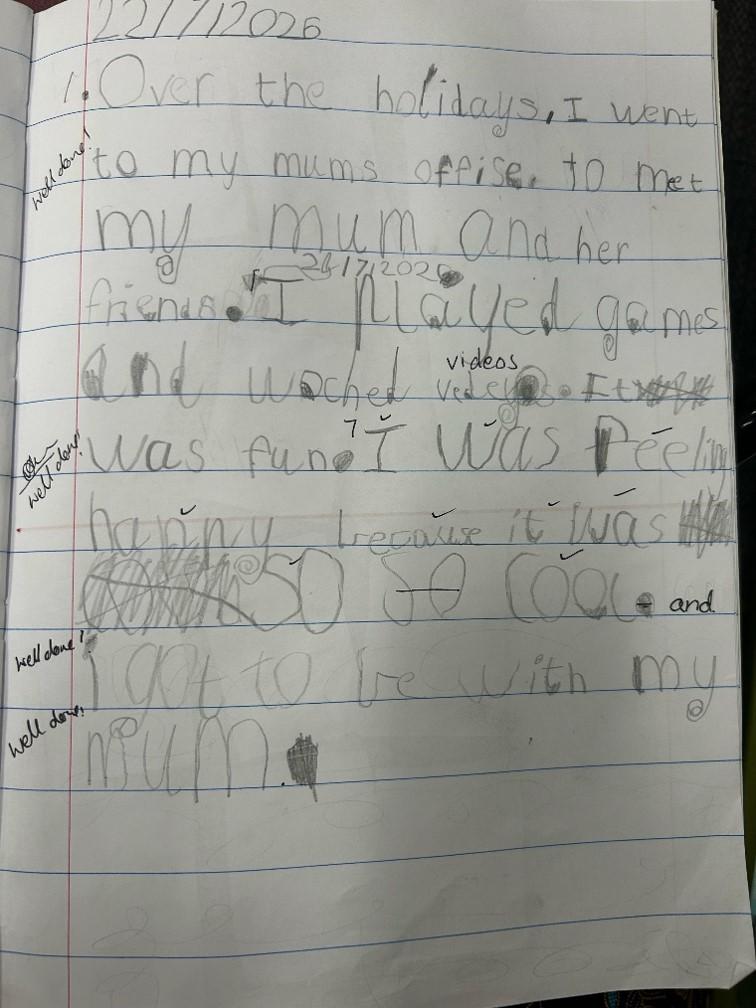 22/7/2026
1. Over the holidays, I went
well done!
to my mums offise. to met
my mum and her
24/7/2026
friends. I played games
videos
and woched It
was fun. I was feeling
well done!
happy because it was
so so cool. and
well done!
i got to be with my
well done!
mum.